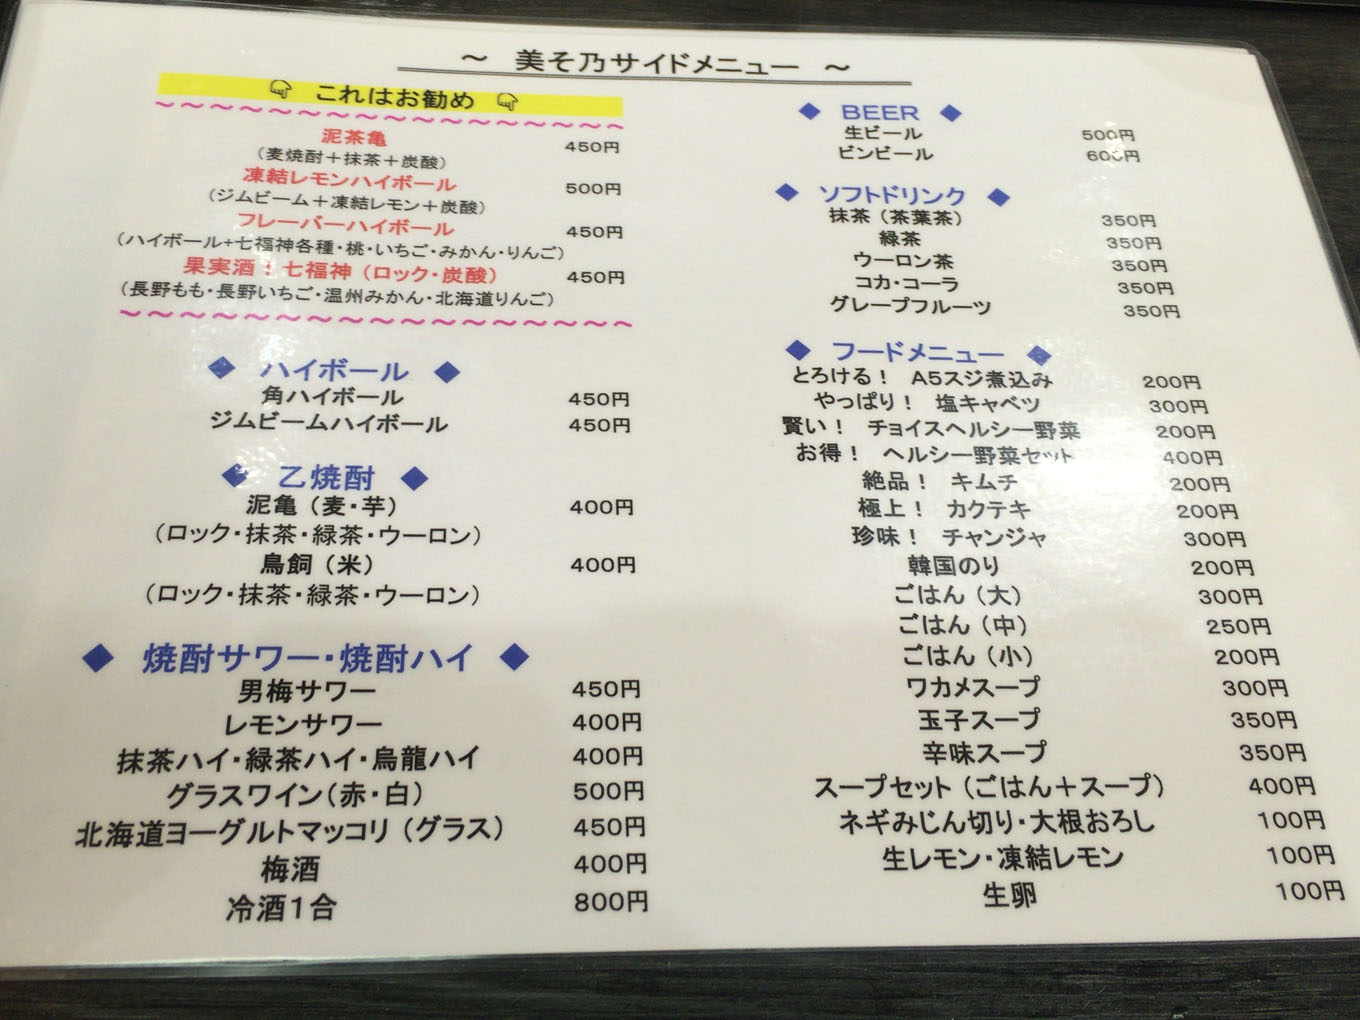 ～ 美そ乃サイドメニュー ～
これはお勧め
泥茶亀 450円
（麦焼酎＋抹茶＋炭酸）
凍結レモンハイボール 500円
（ジムビーム＋凍結レモン＋炭酸）
フレーバーハイボール 450円
（ハイボール+七福神各種・桃・いちご・みかん・りんご）
果実酒！七福神（ロック・炭酸） 450円
（長野もも・長野いちご・温州みかん・北海道りんご）
◆ ハイボール ◆
角ハイボール 450円
ジムビームハイボール 450円
◆ 乙焼酎 ◆
泥亀（麦・芋） 400円
（ロック・抹茶・緑茶・ウーロン）
鳥飼（米） 400円
（ロック・抹茶・緑茶・ウーロン）
◆ 焼酎サワー・焼酎ハイ ◆
男梅サワー 450円
レモンサワー 400円
抹茶ハイ・緑茶ハイ・烏龍ハイ 400円
グラスワイン（赤・白） 500円
北海道ヨーグルトマッコリ（グラス） 450円
梅酒 400円
冷酒１合 800円
◆ BEER ◆
生ビール 500円
ビンビール 600円
◆ ソフトドリンク ◆
抹茶（茶葉茶） 350円
緑茶 350円
ウーロン茶 350円
コカ・コーラ 350円
グレープフルーツ 350円
◆ フードメニュー ◆
とろける！ A5スジ煮込み 200円
やっぱり！ 塩キャベツ 300円
賢い！ チョイスヘルシー野菜 200円
お得！ ヘルシー野菜セット 400円
絶品！ キムチ 200円
極上！ カクテキ 200円
珍味！ チャンジャ 300円
韓国のり 200円
ごはん（大） 300円
ごはん（中） 250円
ごはん（小） 200円
ワカメスープ 300円
玉子スープ 350円
辛味スープ 350円
スープセット（ごはん＋スープ） 400円
ネギみじん切り・大根おろし 100円
生レモン・凍結レモン 100円
生卵 100円